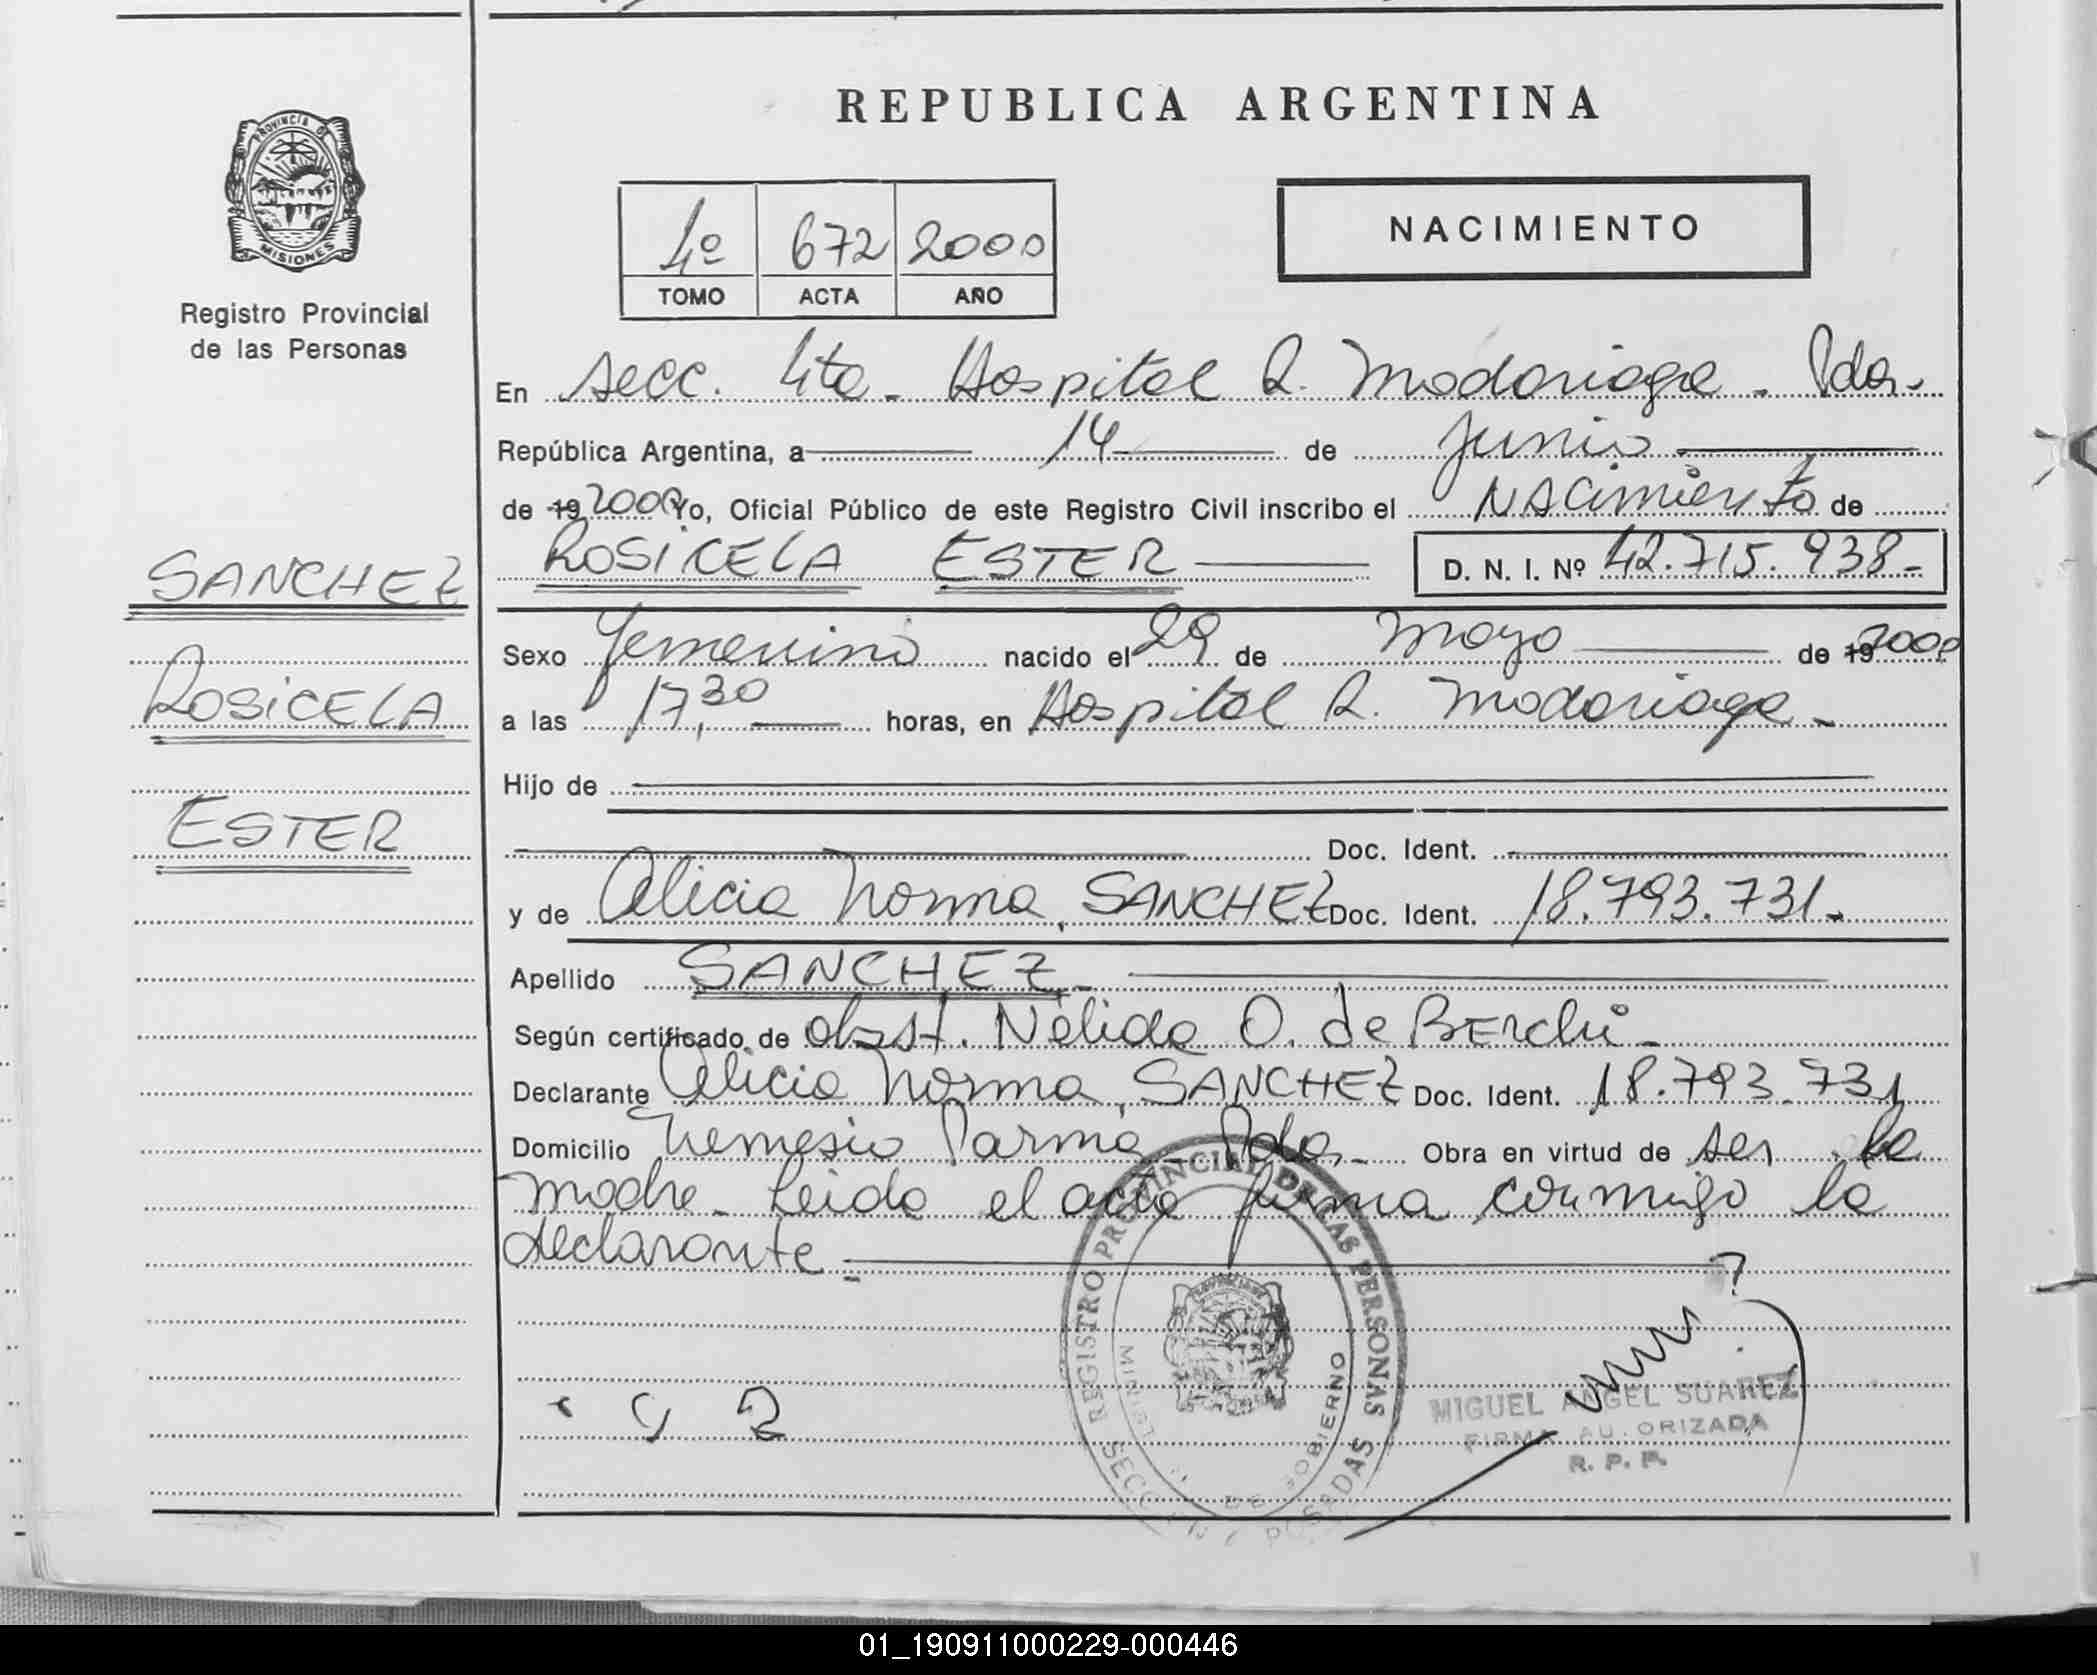 PROVINCIA DE
MISIONES
Registro Provincial
de las Personas
SANCHEZ
ROSICELA
ESTER
REPUBLICA ARGENTINA
4º 672 2000
TOMO ACTA AÑO
NACIMIENTO
En secc. 4ta - Hospital R. Madariaga - Pdas.
República Argentina, a 14 de Junio
de 19 2000 Yo, Oficial Público de este Registro Civil inscribo el NACimiento de
ROSICELA ESTER D. N. I. Nº 42.715.938-
Sexo femenino nacido el 29 de mayo de 19 2000
a las 17,30 horas, en Hospital R. Madariaga -
Hijo de
Doc. Ident.
y de Alicia Norma, SANCHEZ Doc. Ident. 18.793.731-
Apellido SANCHEZ-
Según certificado de obst. Nélida O. de BERchi-
Declarante Alicia Norma, SANCHEZ Doc. Ident. 18.793.731
Domicilio Nemesio Parma - Pdas - Obra en virtud de ser la
madre - Leida el acta firma conmigo la
declarante -
REGISTRO PROVINCIAL DE LAS PERSONAS
GOBIERNO
POSADAS
MIGUEL ANGEL SUAREZ
FIRMA AUTORIZADA
R. P. P.
01_190911000229-000446